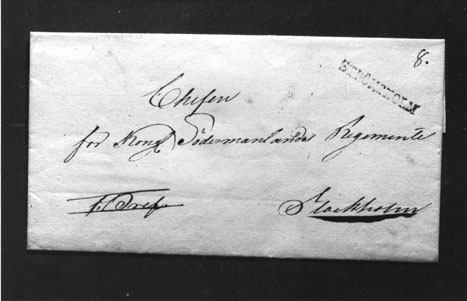 8.
STOCKHOLM
Chefen
för Kongl Södermanlands Regemente
F. Bref
Stockholm